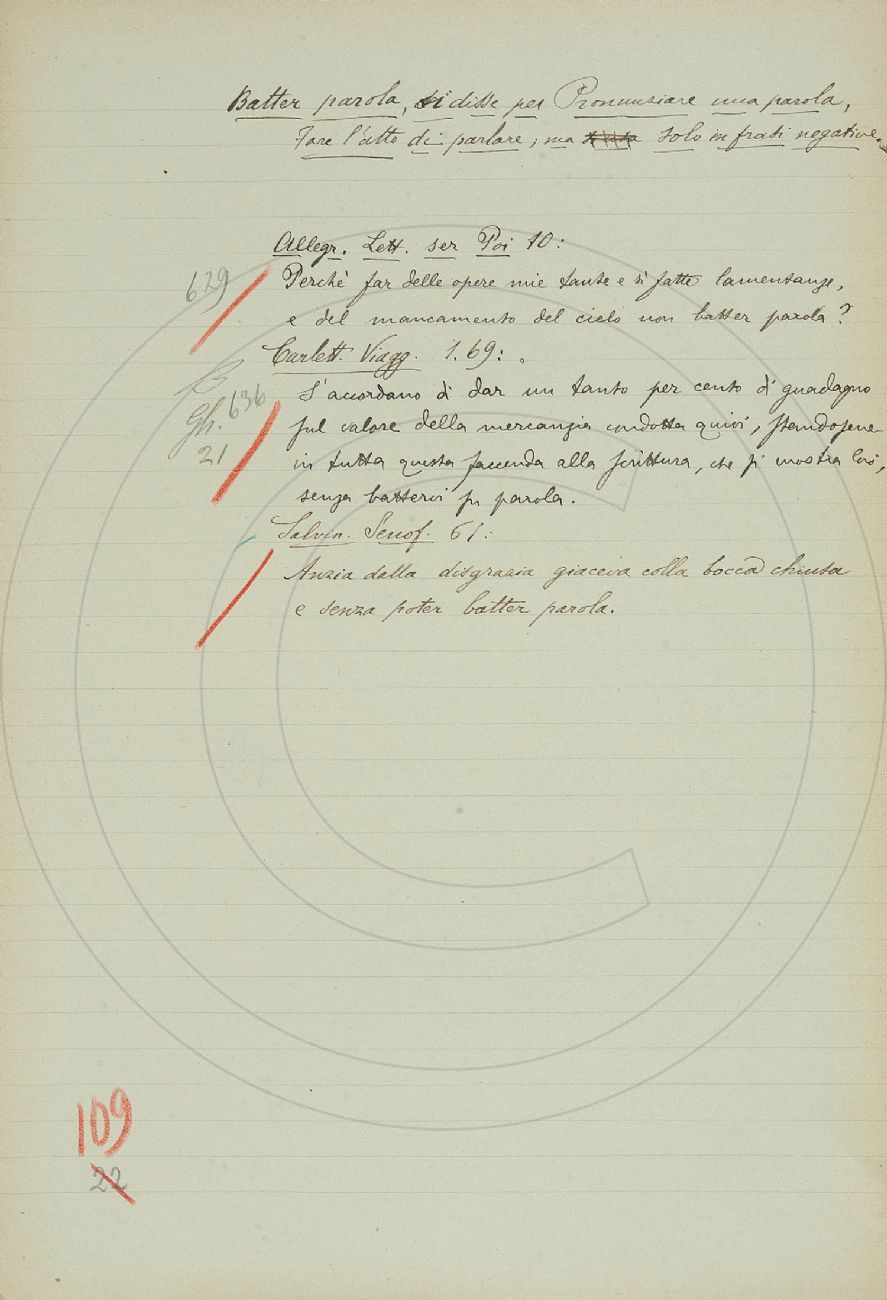 Batter parola, si disse per Pronunziare una parola,
Fare l'atto di parlare; ma solo in frasi negative.
Allegr. Lett. ser Poi 10:
629
Perchè far delle opere mie tante e sì fatte lamentanze,
e del mancamento del cielo non batter parola?
Carlett. Viagg. 1. 69:
S'accordano di dar un tanto per cento di guadagno
Gh. 636
sul valore della mercanzia condotta quivi, standosene
21
in tutta questa faccenda alla scrittura, che si mostra loro,
senza battervi su parola.
Salvin. Senof. 61:
Anzia dalla disgrazia giaceva colla bocca chiusa
e senza poter batter parola.
109
22